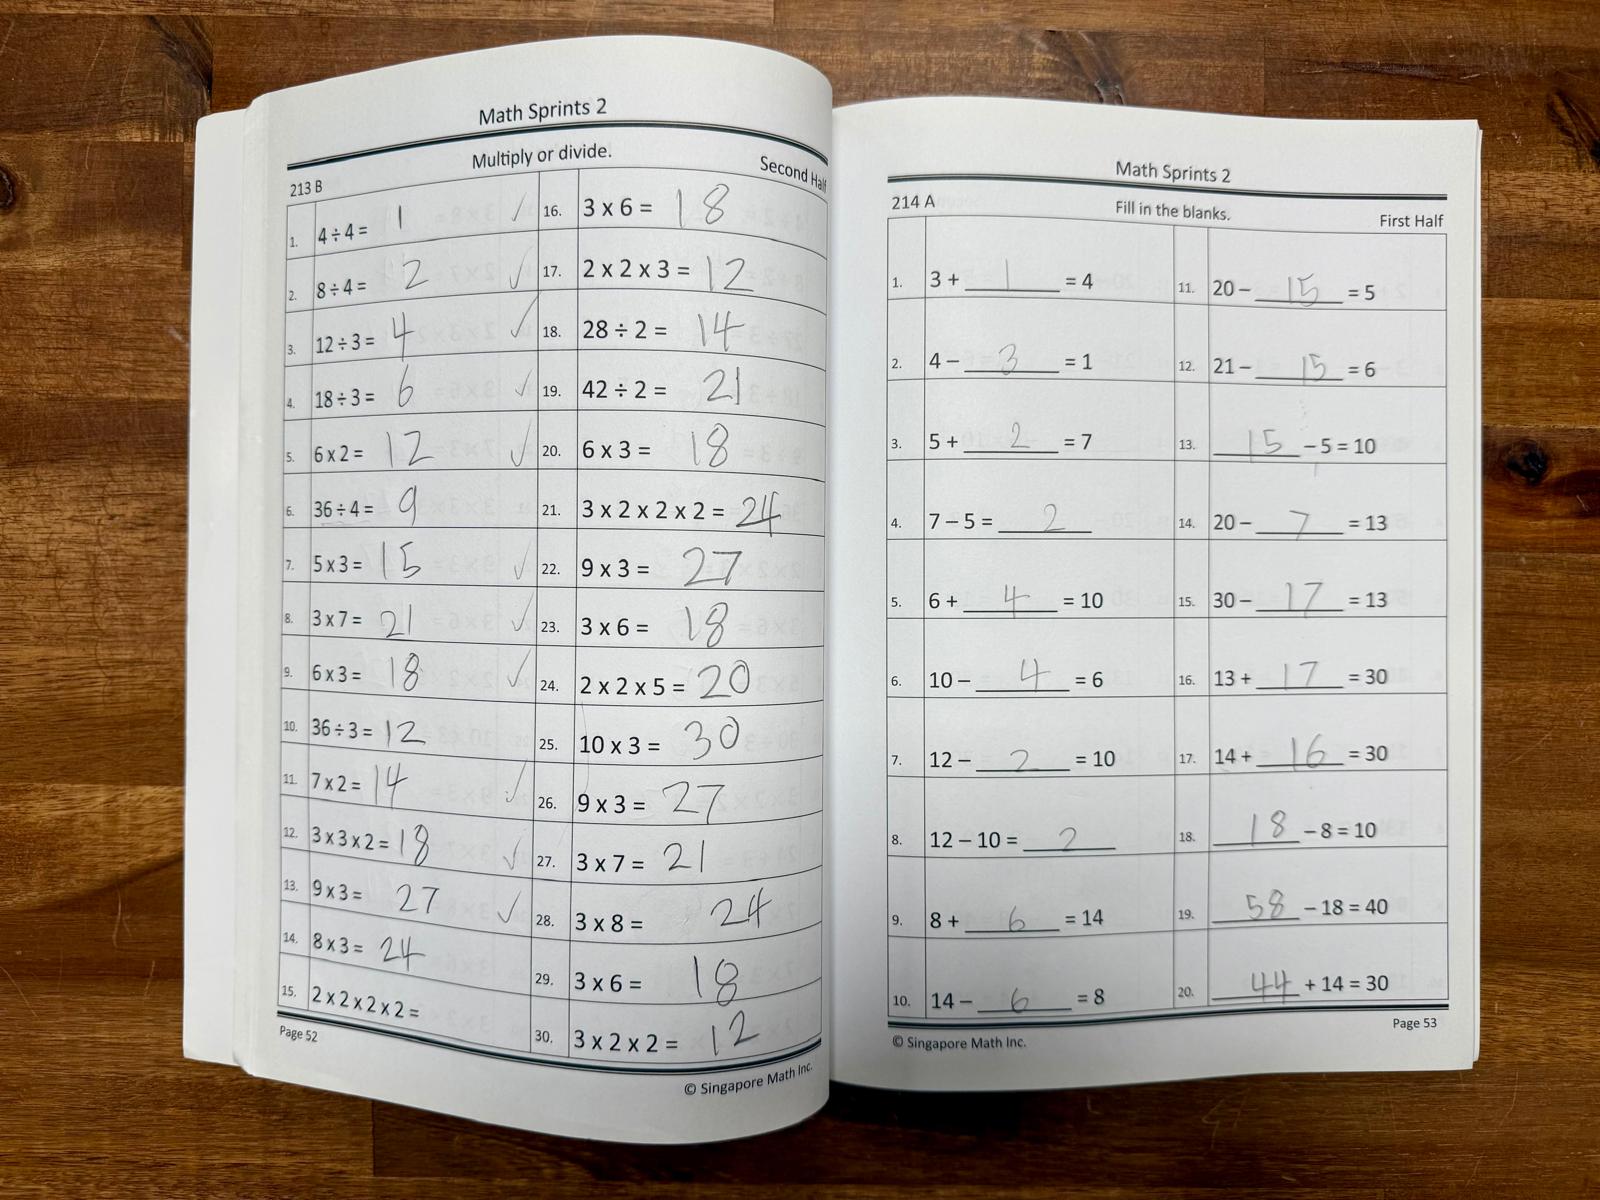 Math Sprints 2
Multiply or divide.
213 B
Second Half
1. 4 ÷ 4 = 1 ✓
2. 8 ÷ 4 = 2 ✓
3. 12 ÷ 3 = 4 ✓
4. 18 ÷ 3 = 6 ✓
5. 6 x 2 = 12 ✓
6. 36 ÷ 4 = 9
7. 5 x 3 = 15 ✓
8. 3 x 7 = 21 ✓
9. 6 x 3 = 18 ✓
10. 36 ÷ 3 = 12
11. 7 x 2 = 14 ✓
12. 3 x 3 x 2 = 18 ✓
13. 9 x 3 = 27 ✓
14. 8 x 3 = 24
15. 2 x 2 x 2 x 2 =
16. 3 x 6 = 18
17. 2 x 2 x 3 = 12
18. 28 ÷ 2 = 14
19. 42 ÷ 2 = 21
20. 6 x 3 = 18
21. 3 x 2 x 2 x 2 = 24
22. 9 x 3 = 27
23. 3 x 6 = 18
24. 2 x 2 x 5 = 20
25. 10 x 3 = 30
26. 9 x 3 = 27
27. 3 x 7 = 21
28. 3 x 8 = 24
29. 3 x 6 = 18
30. 3 x 2 x 2 = 12
Page 52
© Singapore Math Inc.
Math Sprints 2
214 A
Fill in the blanks.
First Half
1. 3 + 1 = 4
2. 4 – 3 = 1
3. 5 + 2 = 7
4. 7 – 5 = 2
5. 6 + 4 = 10
6. 10 – 4 = 6
7. 12 – 2 = 10
8. 12 – 10 = 2
9. 8 + 6 = 14
10. 14 – 6 = 8
11. 20 – 15 = 5
12. 21 – 15 = 6
13. 15 – 5 = 10
14. 20 – 7 = 13
15. 30 – 17 = 13
16. 13 + 17 = 30
17. 14 + 16 = 30
18. 18 – 8 = 10
19. 58 – 18 = 40
20. 44 + 14 = 30
Page 53
© Singapore Math Inc.